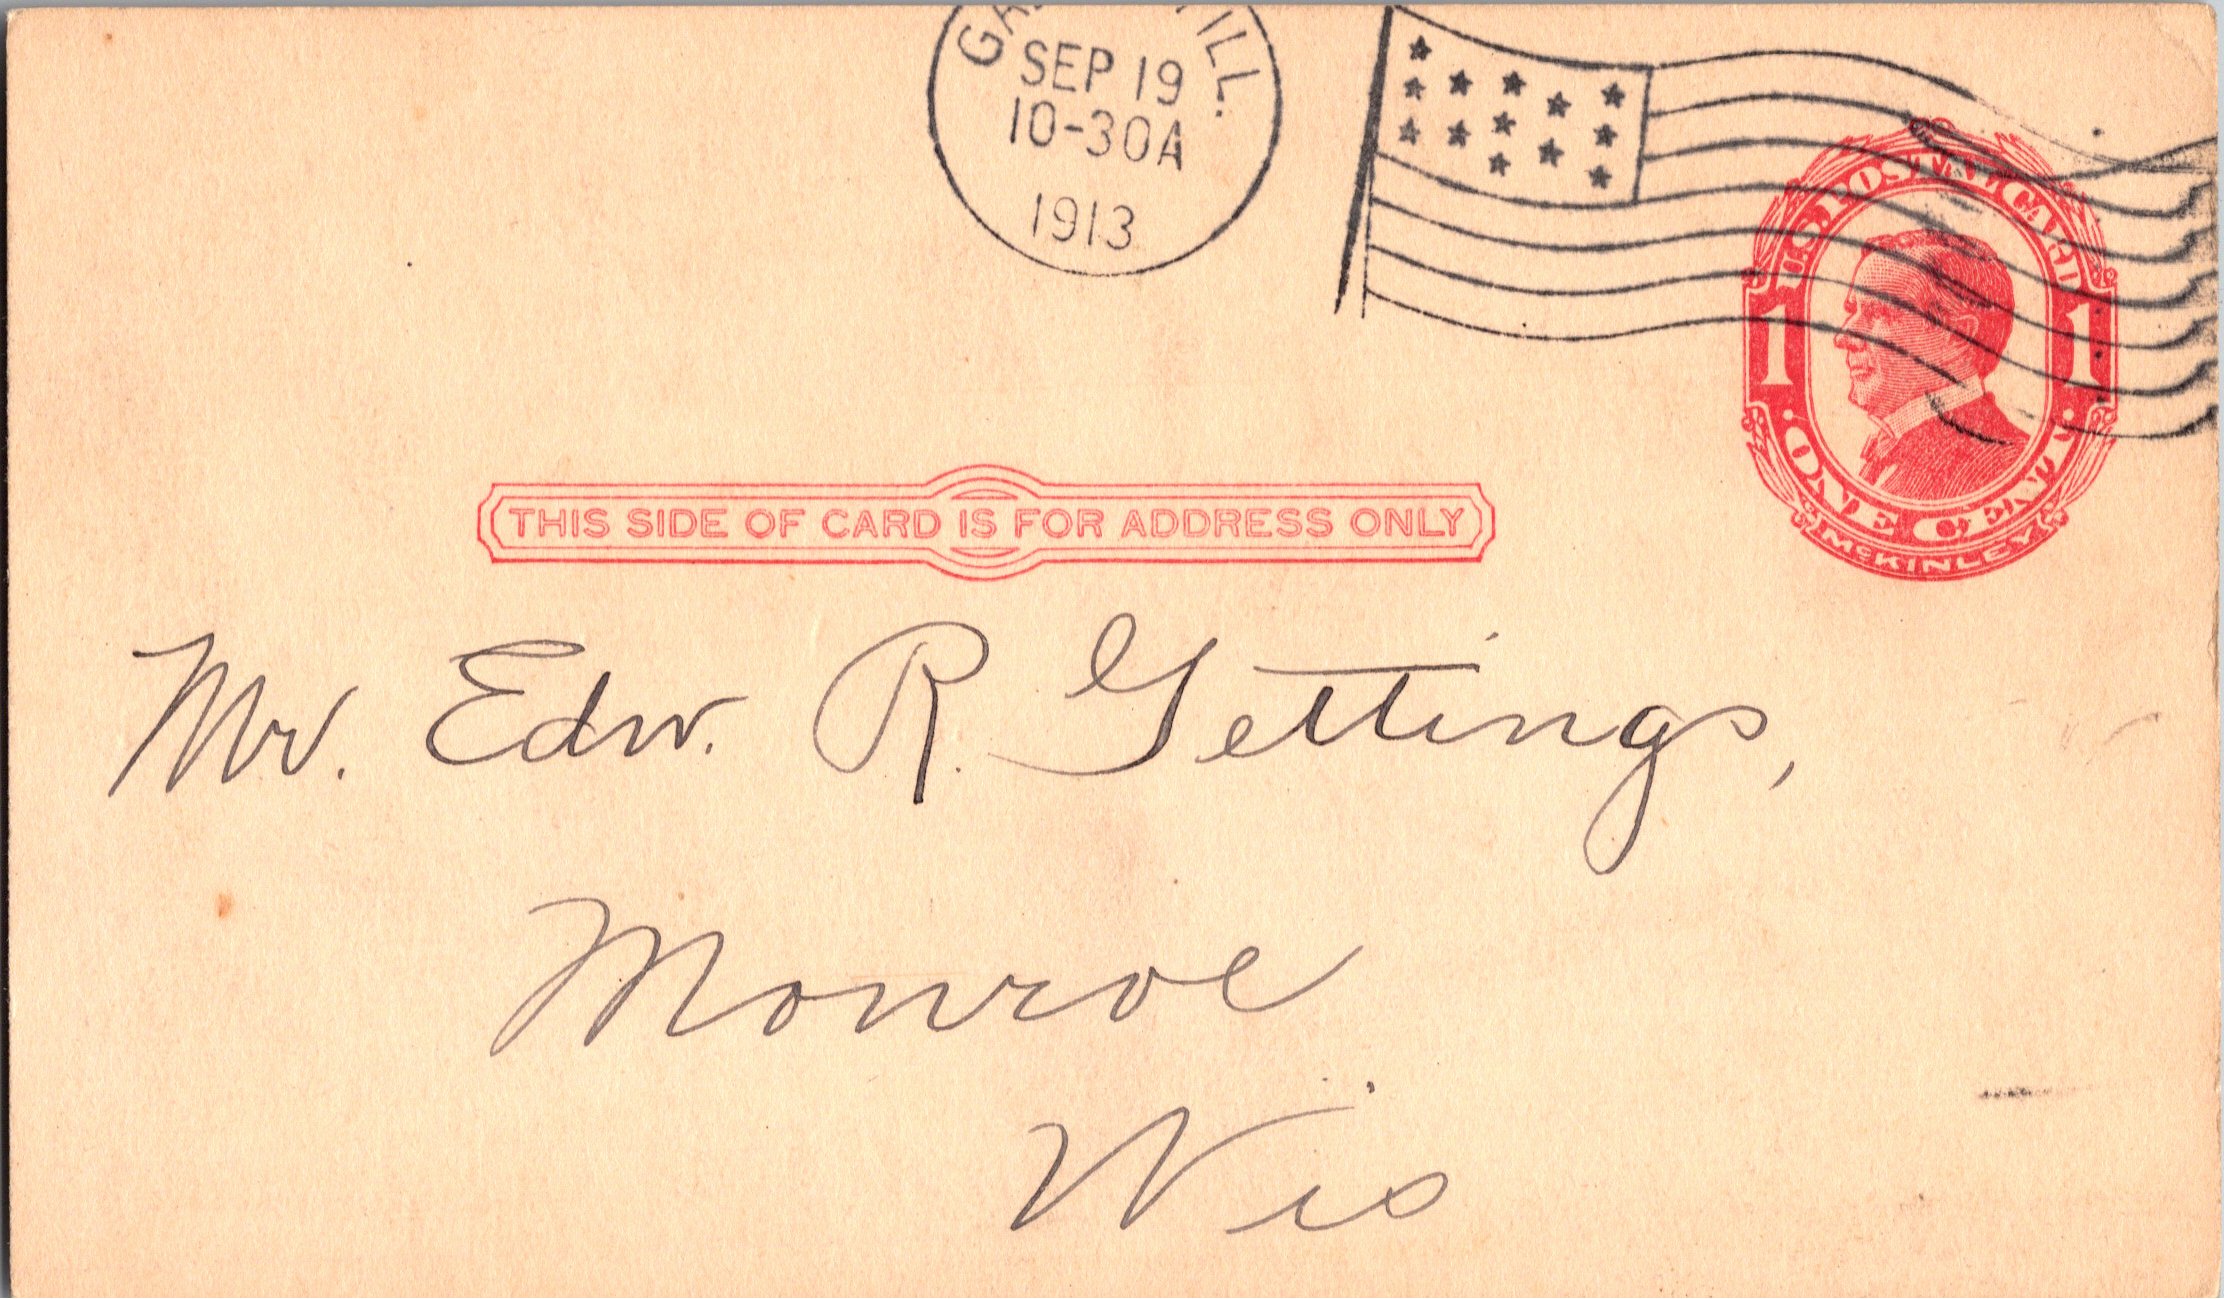 ILL.
SEP 19
10-30A
1913
U.S. POSTAL CARD
1 1
ONE CENT
McKINLEY
THIS SIDE OF CARD IS FOR ADDRESS ONLY
Mr. Edw. R. Gettings,
Monroe
Wis